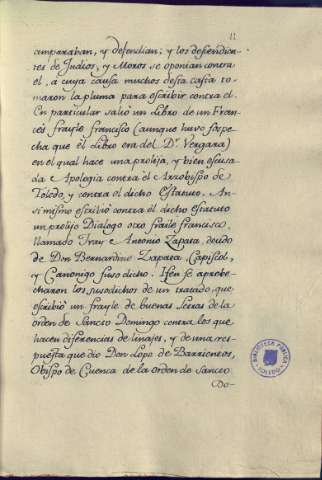 11
amparaban, y defendian; y los defendido-
res de Judios, y Moros se oponian contra
el, à cuya causa muchos desta casta to-
maron la pluma para escribir contra el.
En particular saliò un Libro de un Fran-
cès frayle francisco (aunque huvo sospe-
cha que el Libro era del D.r Vergara)
en el qual hace una prolija, y bien escusa-
da Apologia contra el Arzobispo de
Toledo, y contra el dicho Estatuto. An-
si mismo escribiò contra el dicho estatuto
un prolijo Dialogo otro fraile francisco,
llamado Fray Antonio Zapata, deudo
de Don Bernardino Zapata Capiscol,
y Canonigo suso dicho. Iten se aprobe-
charon los susodichos de un tratado, que
escribiò un frayle de buenas letras de la
orden de Sancto Domingo contra los que
hacen diferencias de linajes, y de una res-
puesta que dio Don Lope de Barrientos,
Obispo de Cuenca de la orden de Sancto
Do-
BIBLIOTECA PUBLICA
TOLEDO